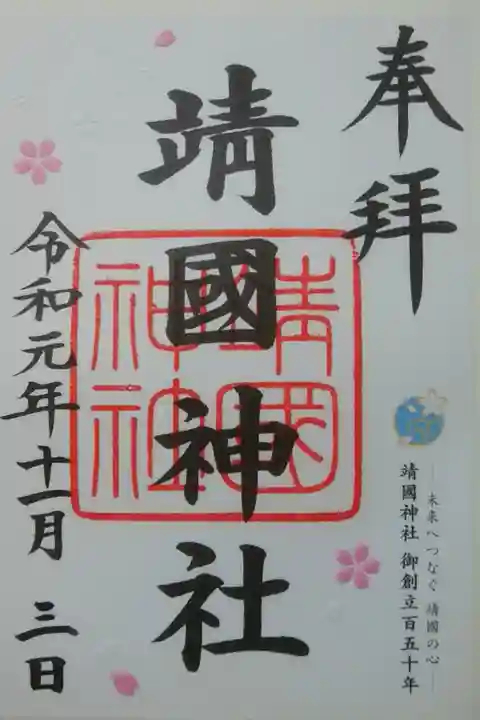 奉拝
靖國神社
靖國神社
令和元年十一月三日
―未来へつなぐ 靖國の心―
靖國神社 御創立百五十年